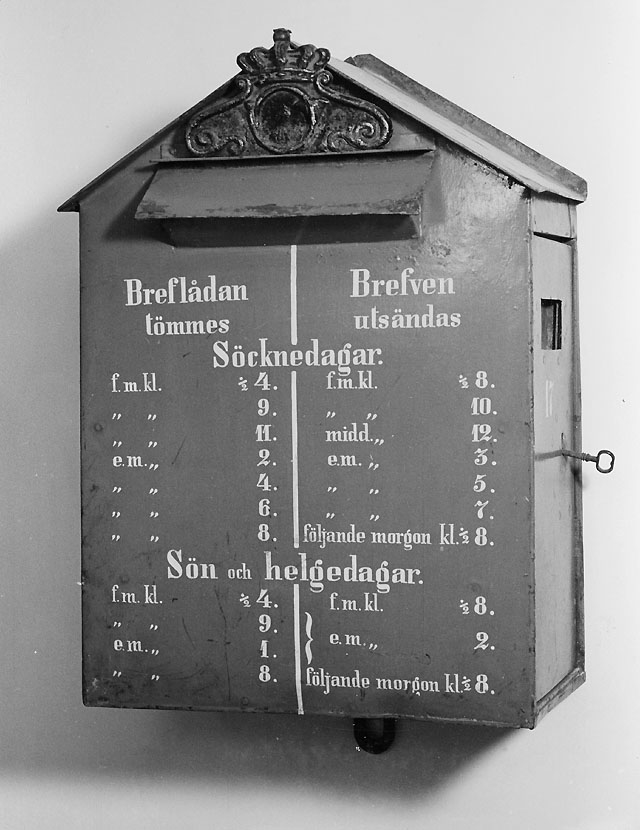 Breflådan Brefven
tömmes utsändas
Söcknedagar.
f.m. kl. ½ 4. f.m. kl. ½ 8.
„ „ 9. „ „ 10.
„ „ 11. midd. „ 12.
e.m. „ 2. e.m. „ 3.
„ „ 4. „ „ 5.
„ „ 6. „ „ 7.
„ „ 8. följande morgon kl. ½ 8.
Sön och helgedagar.
f.m. kl. ½ 4. f.m. kl. ½ 8.
„ „ 9.
e.m. „ 1. } e.m. „ 2.
„ „ 8. följande morgon kl. ½ 8.